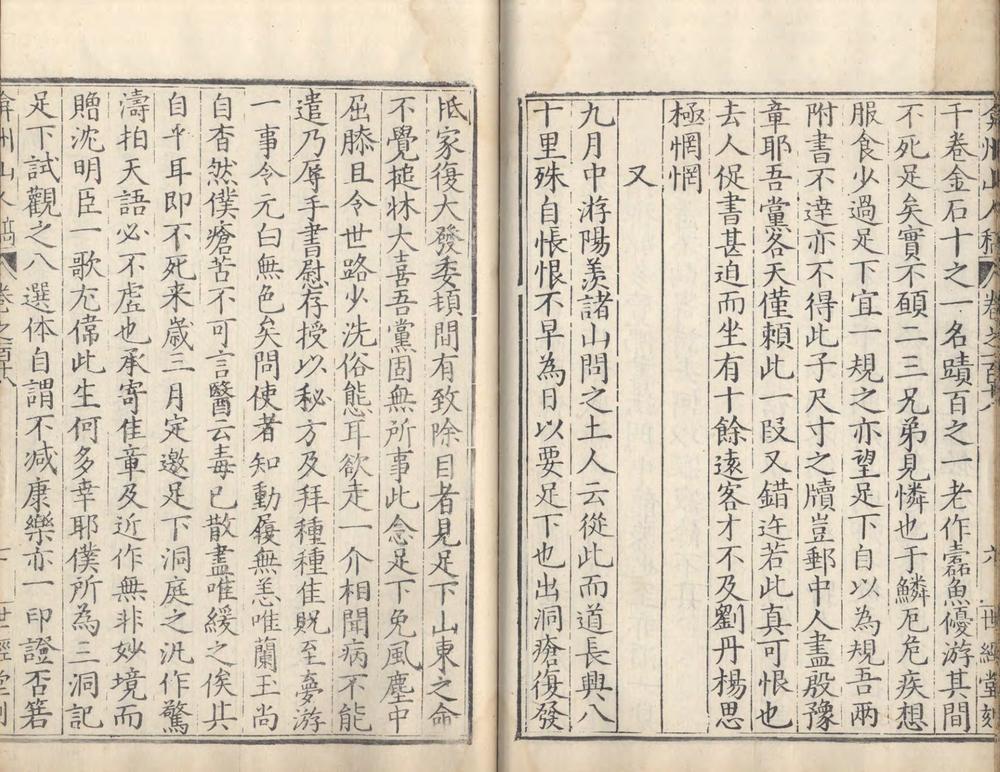 弇州山人稿 卷之一百十八 六 世經堂刻
千卷金石十之一名蹟百之一老作蠹魚優游其間
不死足矣實不願二三兄弟見憐也于鱗厄危疾想
服食少過足下宜一規之亦望足下自以為規吾兩
附書不達亦不得此子尺寸之牘豈郵中人盡殷豫
章耶吾黨各天僅賴此一叚又錯迕若此真可恨也
去人促書甚迫而坐有十餘遠客才不及劉丹楊思
極惘惘
又
九月中游陽羨諸山問之土人云從此而道長興八
十里殊自悵恨不早為日以要足下也出洞瘡復發
抵家復大發委頓間有致除目者見足下山東之命
不覺搥牀大喜吾黨固無所事此念足下免風塵中
屈膝且令世路少洗俗態耳欲走一介相聞病不能
遣乃辱手書慰存授以秘方及拜種種佳貺至夢游
一事令元白無色矣問使者知動履無恙唯蘭玉尚
自杳然僕瘡苦不可言醫云毒已散盡唯緩之俟其
自平耳即不死来歲三月定邀足下洞庭之汎作驚
濤拍天語必不虛也承寄佳章及近作無非妙境而
贈沈明臣一歌尤偉此生何多幸耶僕所為三洞記
足下試觀之八選体自謂不减康樂亦一印證否箬
弇州山人稿 卷之百十八 七 世經堂刻